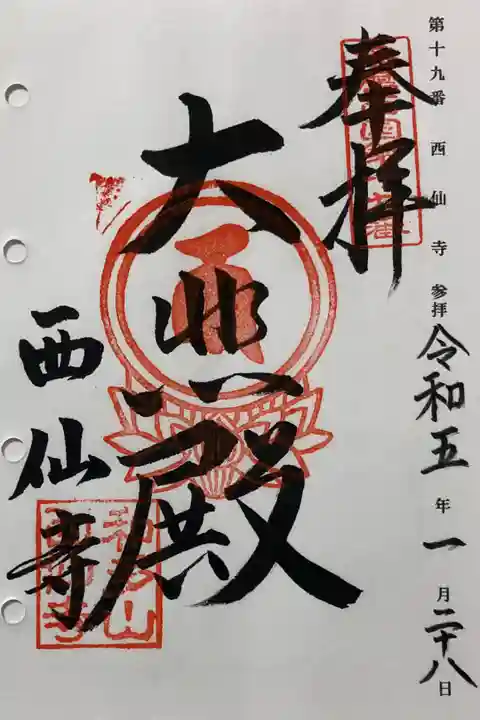 第十九番 西仙寺 参拝 令和五年一月二十八日
奉拝
大悲殿
西仙寺